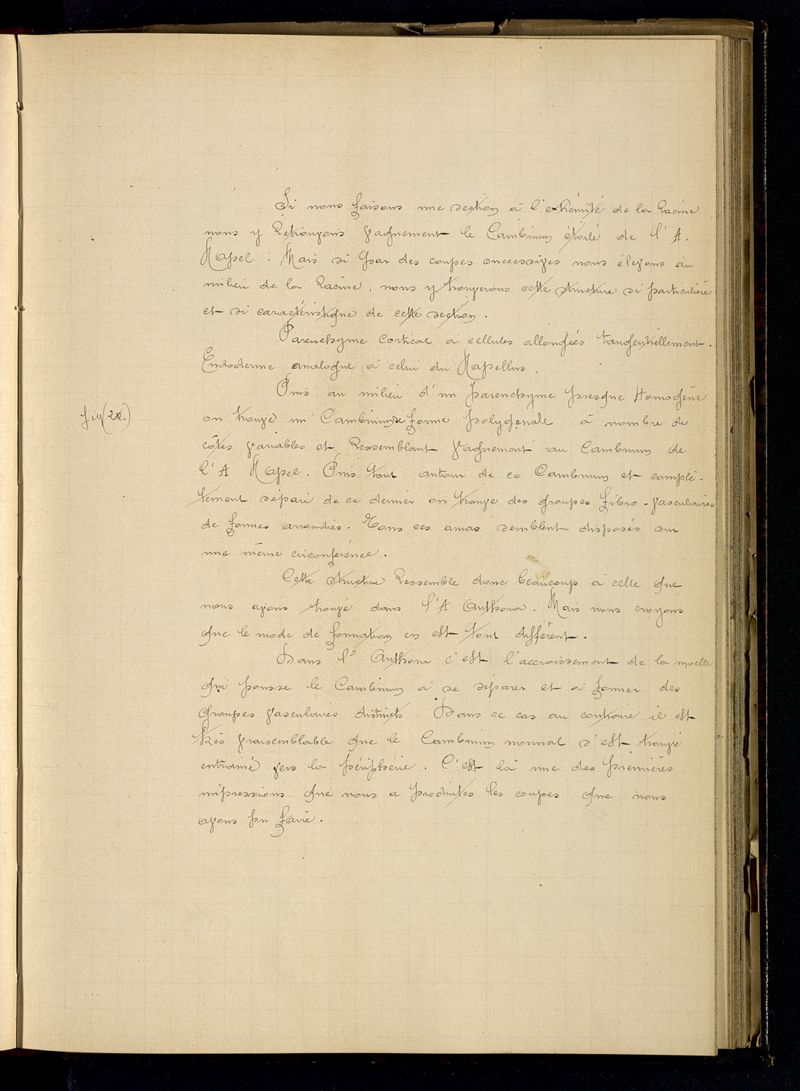 Si nous faisons une section à l'extrémité de la Racine
nous y Retrouvons vaguement le Cambium étoilé de l'A.
Napel : Mais si par des coupes successives nous élevons au
milieu de la Racine, nous y trouverons cette structure si particulière
et si caractéristique de cette section.
Parenchyme Cortical à cellules allongées tangentiellement.
Endoderme analogue à celui du Napellus.
Puis au milieu d'un parenchyme presque Homogène
fig (28.)
on trouve un Cambium de forme polygonale à nombre de
côtés variables et Ressemblant vaguement au Cambium de
l'A Napel. Puis tout autour de ce Cambium et complè-
tement séparé de ce dernier on trouve des groupes fibro-vasculaires
de formes arrondies. Tous ces amas semblent disposés sur
une même circonférence.
Cette structure Ressemble donc beaucoup à celle que
nous avons trouvé dans l'A Anthora. Mais nous croyons
que le mode de formation en est tout différent.
Dans l'Anthora c'est l'accroissement de la moelle
qui pousse le Cambium à se séparer et à former des
groupes vasculaires distincts. Dans ce cas au contraire il est
très vraisemblable que le Cambium normal s'est trouvé
entrainé vers la périphérie. C'est là une des premières
impressions que nous a produites les coupes que nous
avons pu faire.